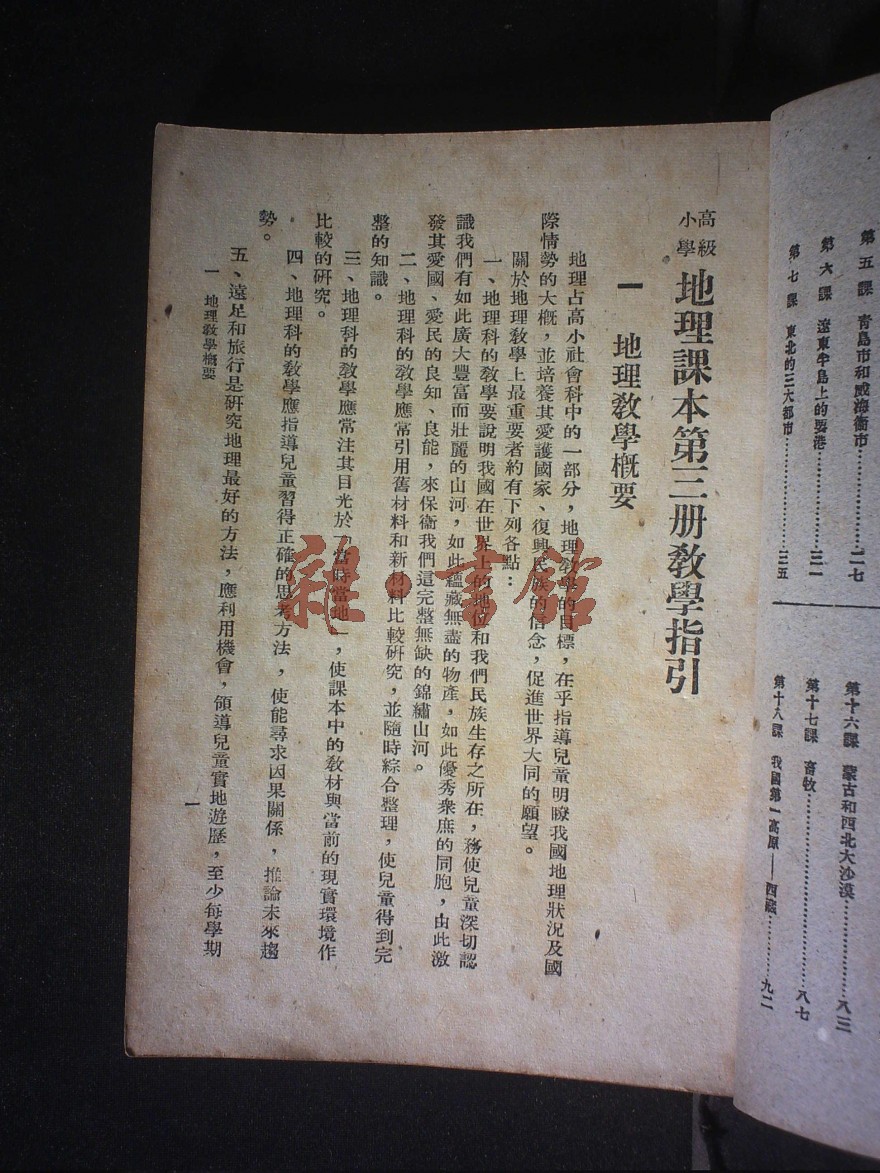 第五課 青島市和威海衞市…………二七
第六課 遼東半島上的要港…………三一
第七課 東北的三大都市…………三五
第十六課 蒙古和西北大沙漠…………八三
第十七課 畜牧…………八七
第十八課 我國第一高原——西藏…………九二
高級小學 地理課本第三册教學指引
一 地理教學概要
地理占高小社會科中的一部分，地理教學的目標，在乎指導兒童明瞭我國地理狀況及國
際情勢的大概，並培養其愛護國家、復興民族的信念，促進世界大同的願望。
關於地理教學上最重要者約有下列各點：
一、地理科的教學要說明我國在世界上的地位和我們民族生存之所在，務使兒童深切認
識我們有如此廣大豐富而壯麗的山河，如此蘊藏無盡的物產，如此優秀衆庶的同胞，由此激
發其愛國、愛民的良知、良能，來保衞我們這完整無缺的錦繡山河。
二、地理科的教學應常引用舊材料和新材料比較研究，並隨時綜合整理，使兒童得到完
整的知識。
三、地理科的教學應常注其目光於「當時當地」，使課本中的教材與當前的現實環境作
比較的研究。
四、地理科的教學應指導兒童習得正確的思考方法，使能尋求因果關係，推論未來趨
勢。
五、遠足和旅行是研究地理最好的方法，應利用機會，領導兒童實地遊歷，至少每學期
一 地理教學概要
一
雜·書館